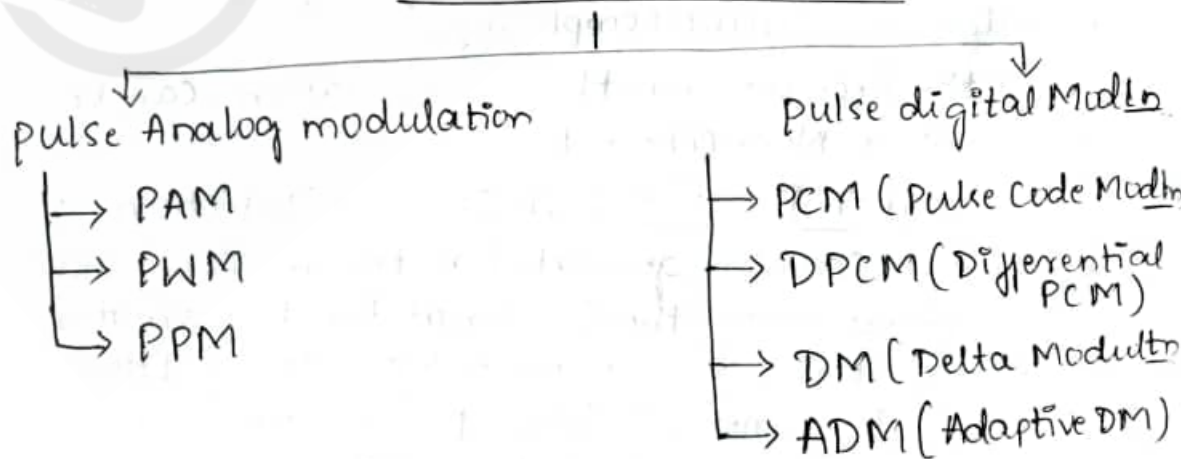 pulse Analog modulation
→ PAM
→ PWM
→ PPM
pulse digital Modln
→ PCM (Pulse Code Modln
→ DPCM (Differential
PCM)
→ DM (Delta Modultn
→ ADM (Adaptive DM)